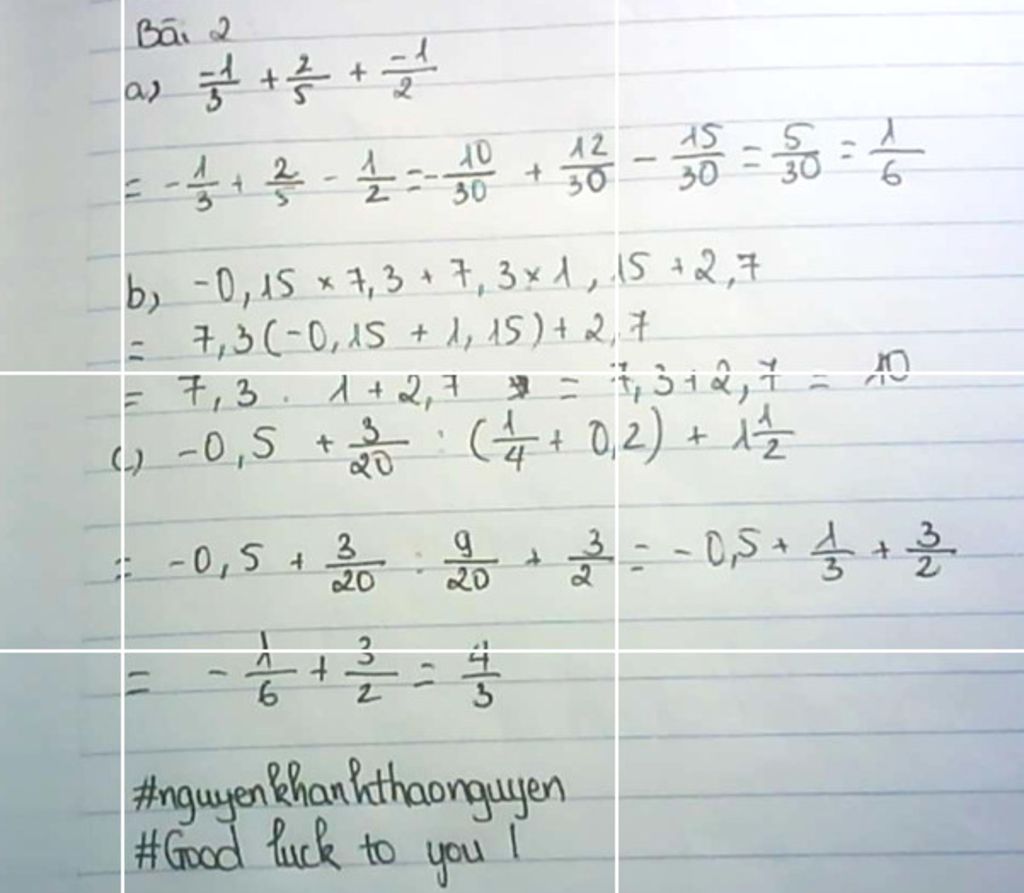 Bài 2
a) -1/3 + 2/5 + -1/2
= -1/3 + 2/5 - 1/2 = -10/30 + 12/30 - 15/30 = 5/30 = 1/6
b) -0,15 × 7,3 + 7,3 × 1,15 + 2,7
= 7,3(-0,15 + 1,15) + 2,7
= 7,3 . 1 + 2,7 = 7,3 + 2,7 = 10
c) -0,5 + 3/20 : (1/4 + 0,2) + 1 1/2
= -0,5 + 3/20 : 9/20 + 3/2 = -0,5 + 1/3 + 3/2
= -1/6 + 3/2 = 4/3
#nguyenkhanhthaonguyen
#Good luck to you !